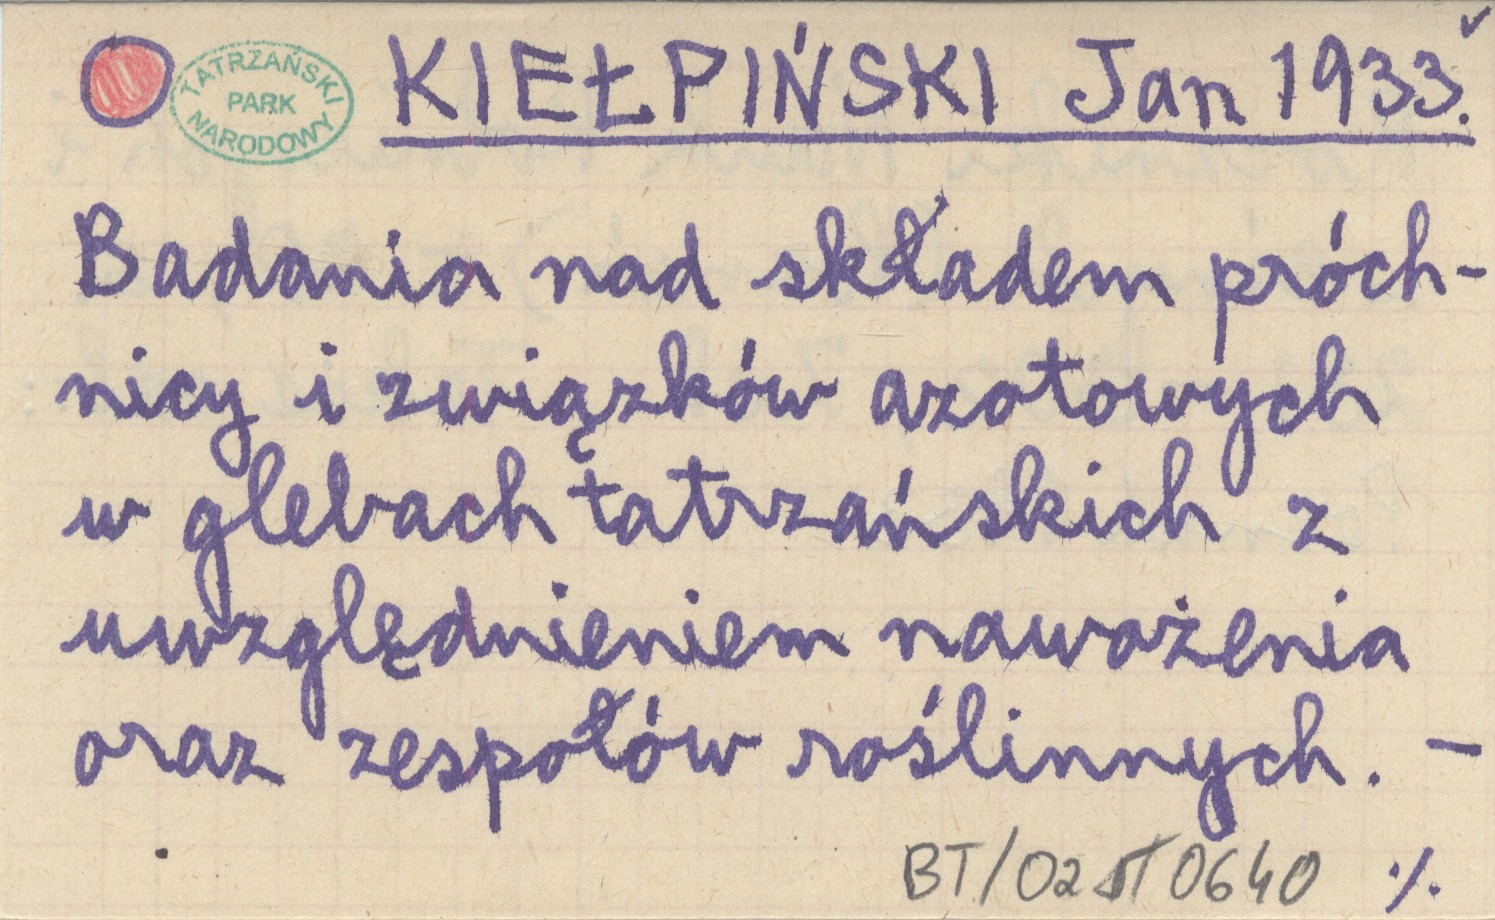 TATRZAŃSKI
PARK
NARODOWY
KIEŁPIŃSKI Jan 1933.
Badania nad składem próch-
nicy i związków azotowych
w glebach tatrzańskich z
uwzględnieniem nawożenia
oraz zespołów roślinnych. –
BT/02 0640 ./.